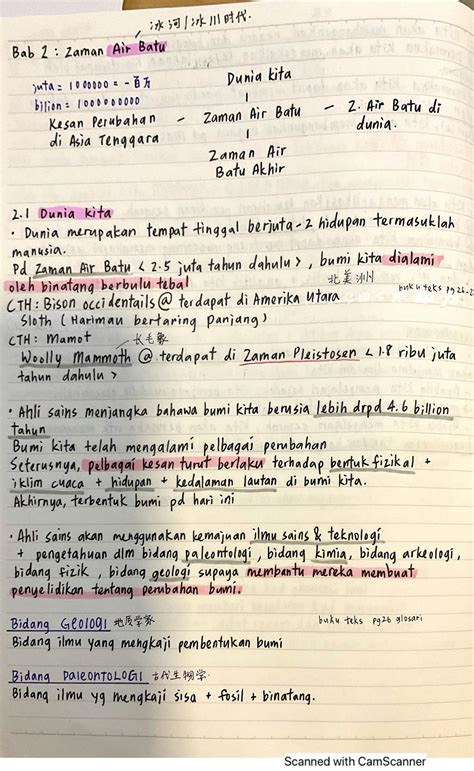 冰河/冰川时代.
Bab 2 : Zaman Air Batu
juta = 1000000 = 一百万
bilion = 1000000000
Dunia kita
Kesan Perubahan di Asia Tenggara - Zaman Air Batu - Z. Air Batu di dunia.
Zaman Air
Batu Akhir
2.1 Dunia kita
• Dunia merupakan tempat tinggal berjuta-2 hidupan termasuklah
manusia.
Pd Zaman Air Batu < 2.5 juta tahun dahulu >, bumi kita dialami
oleh binatang berbulu tebal
北美洲
buku teks pg26-2
CTH : Bison occidentails @ terdapat di Amerika Utara
Sloth ( Harimau bertaring panjang )
CTH : Mamot
长毛象
Woolly Mammoth @ terdapat di Zaman Pleistosen < 1.8 ribu juta
tahun dahulu >
• Ahli sains menjangka bahawa bumi kita berusia lebih drpd 4.6 billion
tahun
Bumi kita telah mengalami pelbagai perubahan
Seterusnya, pelbagai kesan turut berlaku terhadap bentuk fizikal +
iklim cuaca + hidupan + kedalaman lautan di bumi kita.
Akhirnya, terbentuk bumi pd hari ini
• Ahli sains akan menggunakan kemajuan ilmu sains & teknologi
+ pengetahuan dlm bidang paleontologi, bidang kimia, bidang arkeologi,
bidang fizik, bidang geologi supaya membantu mereka membuat
penyelidikan tentang perubahan bumi.
Bidang GEOlOGI 地质学家
buku teks pg26 glosari
Bidang ilmu yang mengkaji pembentukan bumi
Bidang PALEONTOLOGI 古代生物学.
Bidang ilmu yg mengkaji sisa + fosil + binatang.
Scanned with CamScanner